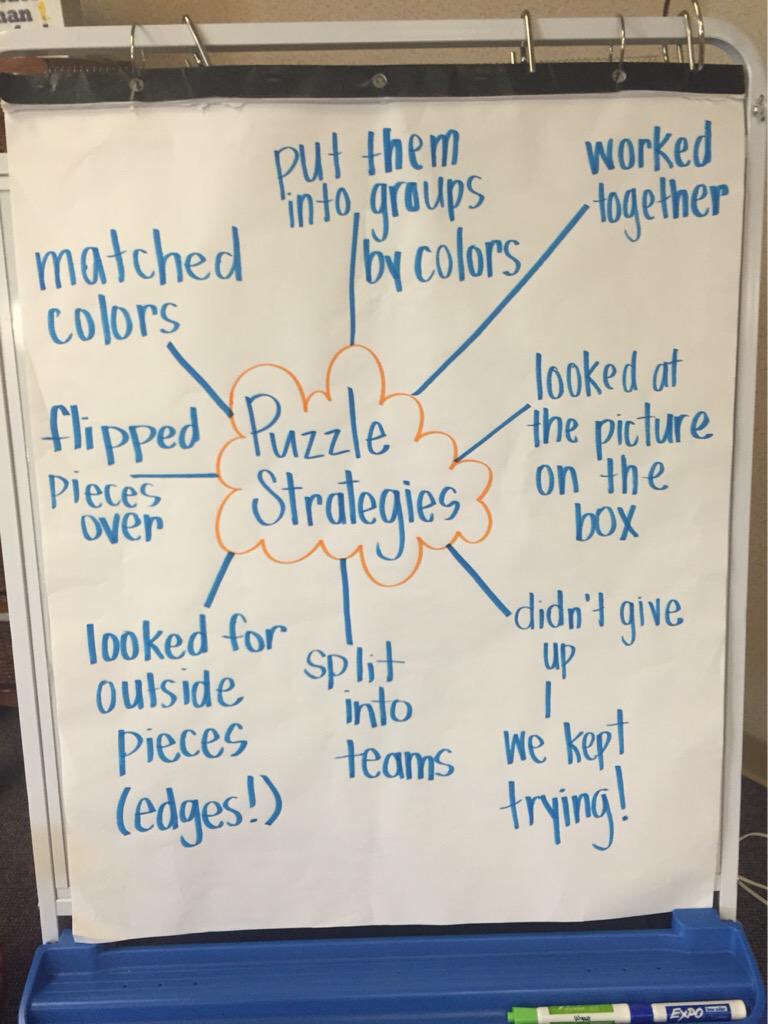 an!
Puzzle
Strategies
put them
into groups
by colors
worked
together
looked at
the picture
on the
box
didn't give
up
we kept
trying!
split
into
teams
looked for
outside
pieces
(edges!)
flipped
pieces
over
matched
colors
EXPO